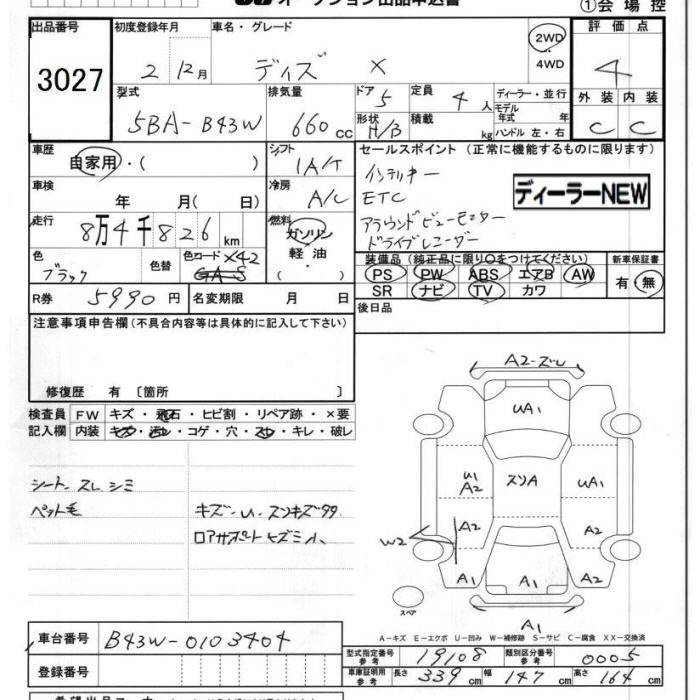 オークション出品申込書
①会場控
出品番号
3027
初度登録年月
2 12月
車名・グレード
デイズ X
2WD
4WD
評価点
4
外装 内装
C C
型式
5BA-B43W
排気量
660 cc
ドア 5
形状 H/B
定員 4人
積載 kg
ディーラー・並行
モデル年式 年
ハンドル 左・右
車歴
自家用・( )
シフト
IA/T
セールスポイント (正常に機能するものに限ります)
インテリキー
ETC
アラウンドビューモニター
ドライブレコーダー
ディーラーNEW
車検
年 月( 日)
冷房
A/C
走行
8万4千826km
燃料
ガソリン
軽油
・( )
色
ブラック
色替
色コード X42
GAS
装備品 (純正品に限り○をつけてください)
PS PW ABS エアB AW
SR ナビ TV カワ
新車保証書
有・無
R券 5990円
名変期限 月 日
後日品
注意事項申告欄(不具合内容等は具体的に記入して下さい)
修復歴 有 〔箇所 〕
検査員記入欄
FW キズ・飛石・ヒビ割・リペア跡・×要
内装 キズ・汚レ・コゲ・穴・スレ・キレ・破レ
シート スレ シミ
ペット毛
キズ・U・スリキズ99
ロアサポートヒズミ小
A2-ズレ
UA1
U1
A2
スリA
UA1
A2
A2
W2
A1
A1
A1
A1
スペア
A-キズ E-エクボ U-凹み W-補修跡 S-サビ C-腐食 XX-交換済
車台番号
B43W-0103404
登録番号
型式指定番号
参考
19108
類別区分番号
参考
0005
車庫証明用
参考
長さ 339cm
幅 147cm
高さ 164cm